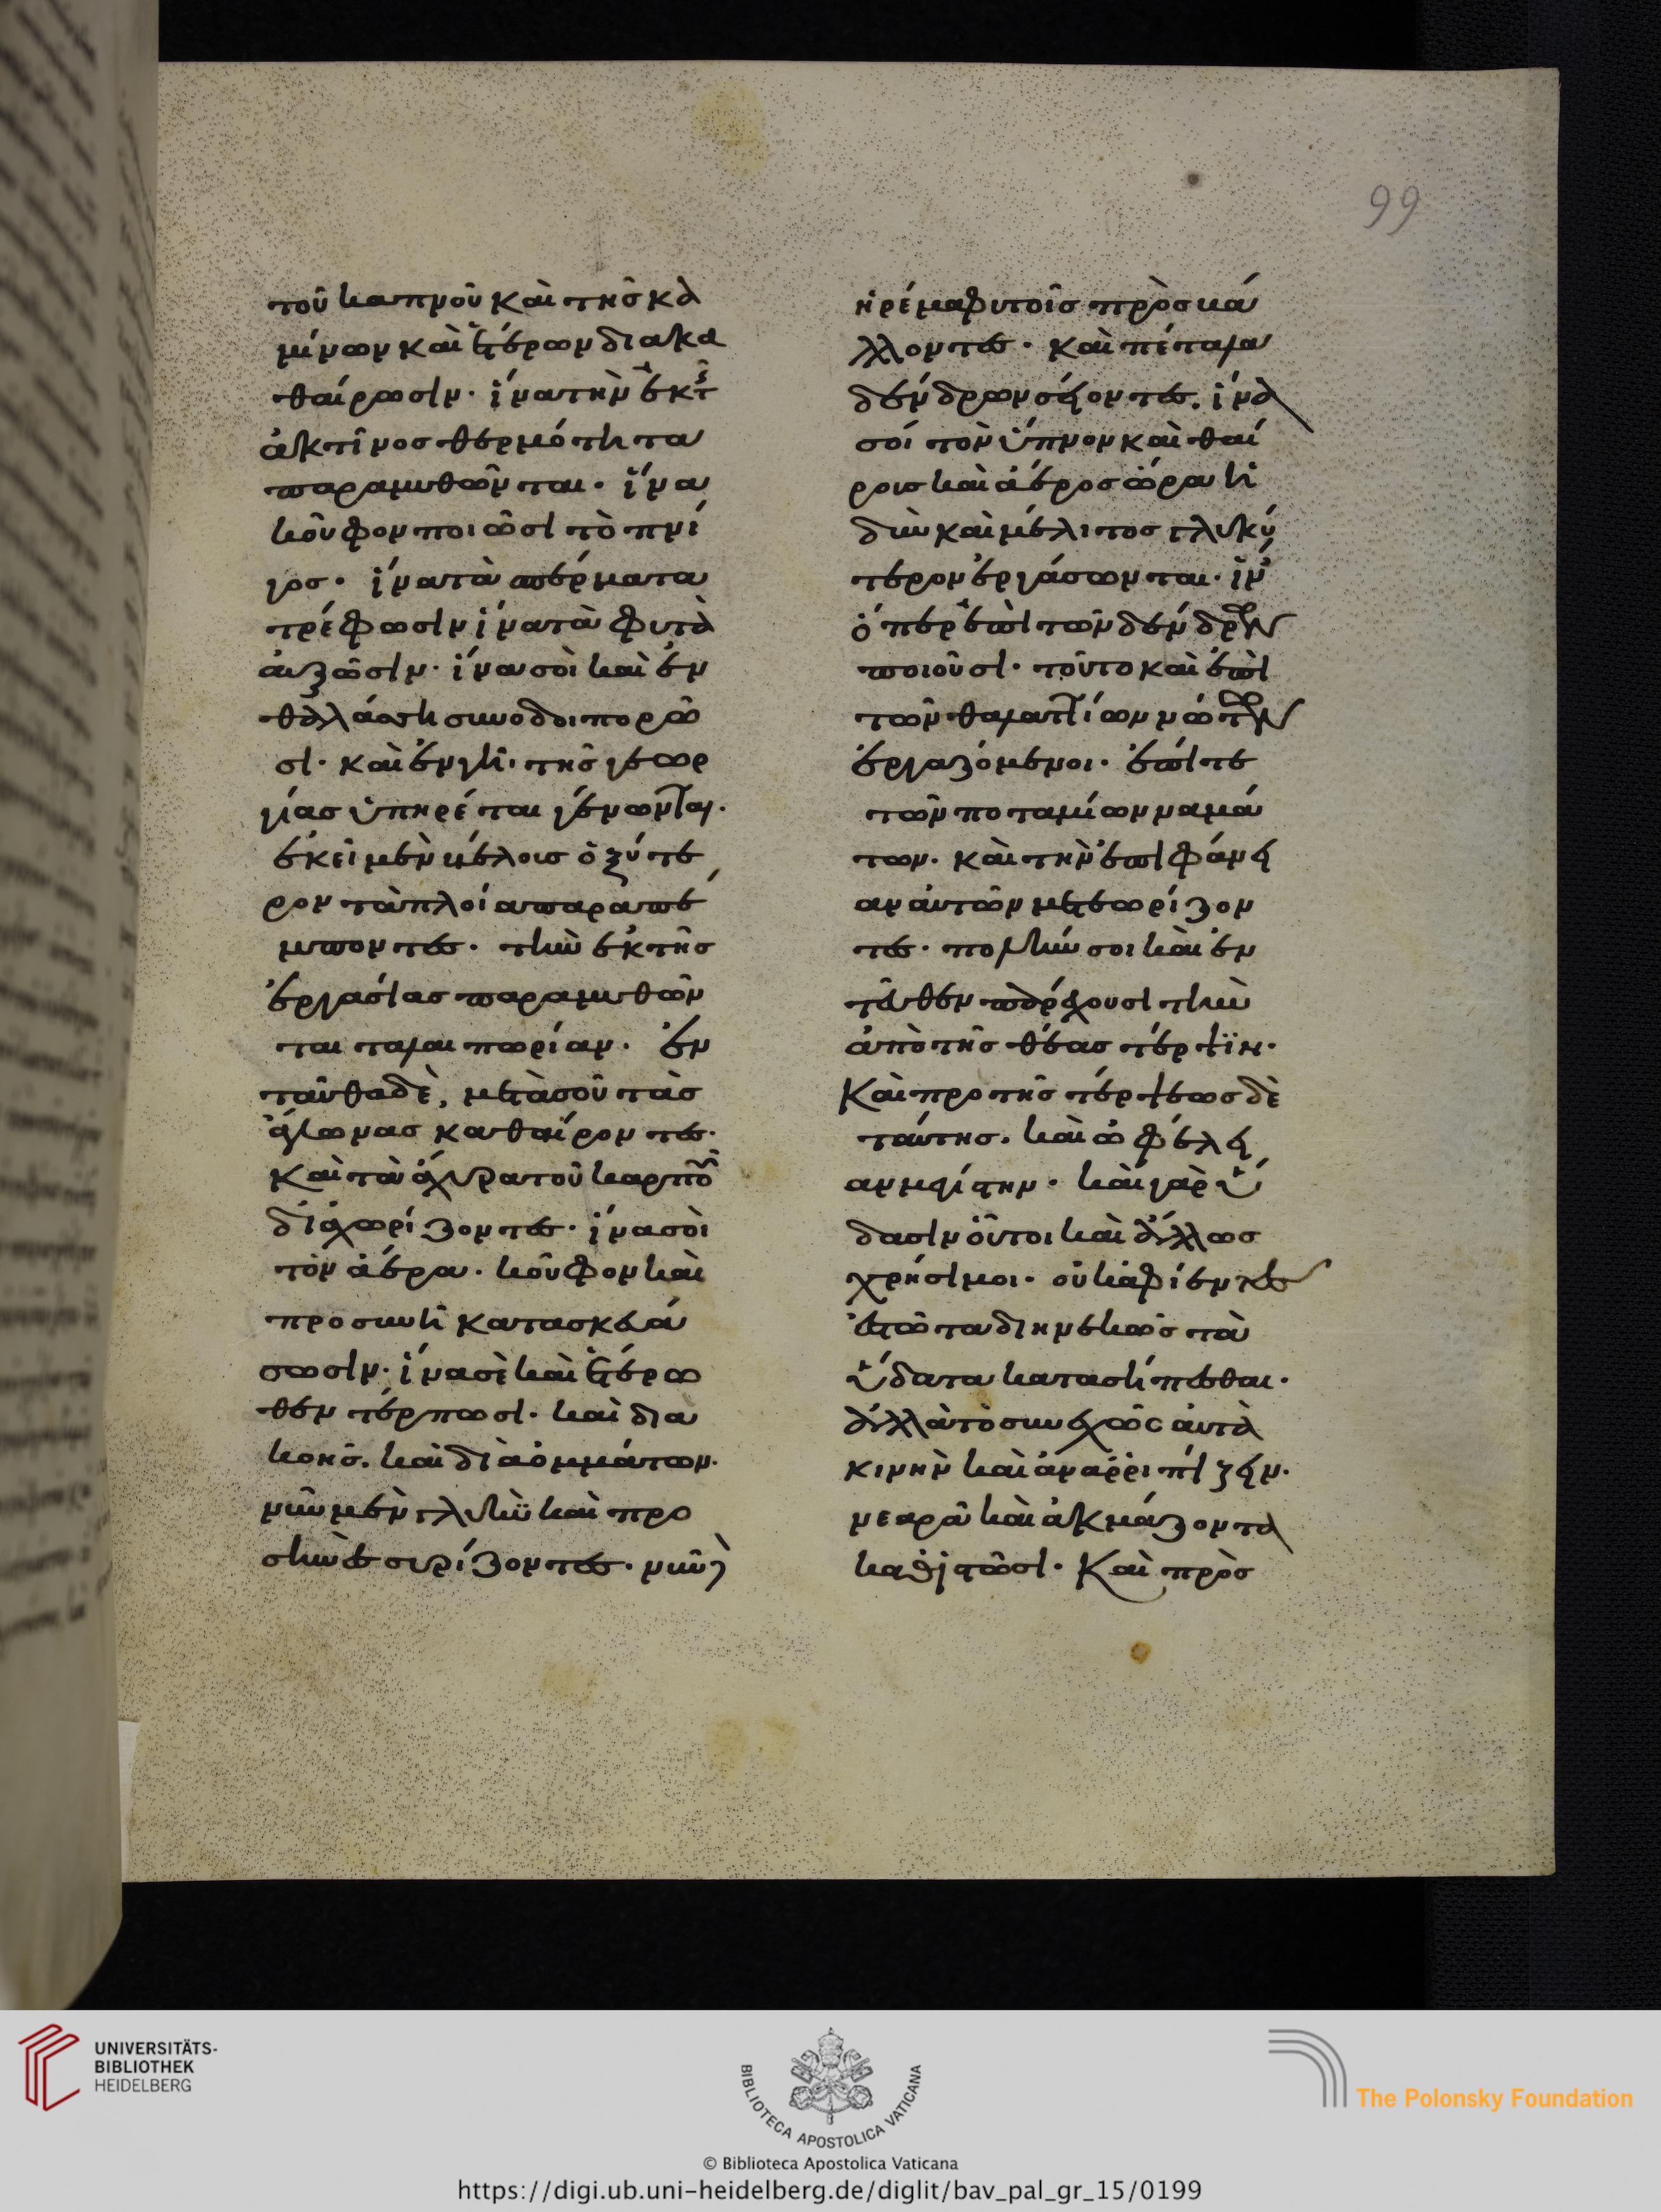 99
τοῦ καπνοῦ καὶ τῆς κα
μίνων καὶ ἑτέρων διακα
θαίρωσιν· ἵνα τὴν ἐκ τῆς
ἀκτῖνος θερμότητα
παραμυθῶνται· ἵνα
κοῦφον ποιῶσι τὸ πνί
γος· ἵνα τὰ σπέρματα
τρέφωσιν ἵνα τὰ φυτὰ
αὐξῶσιν· ἵνα σοὶ καὶ ἐν
θαλάσση συνοδοιπορῶ
σι· καὶ ἐν γῆ· τῆς γεωρ
γίας ὑπηρέται γένωνται·
ἐκεῖ μὲν βέλοις ὀξύτε
ρον τὰ πλοία παραπέ
μποντες· τὴν ἐκ τῆς
ἐργασίας παραμυθῶν
ται ταλαιπωρίαν· ἐν
ταῦθα δὲ, μετὰ σοῦ τὰς
ἅλωνας καθαίροντες·
καὶ τὰ ἄχυρα τοῦ καρποῦ
διαχωρίζοντες· ἵνα σοὶ
τὸν ἀέρα· κοῦφον καὶ
προσηνῆ κατασκευά
σωσιν· ἵνα σὲ καὶ ἑτέρω
θεν τέρπωσι· καὶ δια
κοῆς· καὶ διὰ ὀμμάτων·
νῦν μὲν γλυκὺ καὶ προ
σηνὲς συρίζοντες· νῦν δὲ
ἠρέμα φυτοῖς προσβά
λλοντες· καὶ πέταλα
δένδρων σείοντες· ἵνα
σοί τὸν ὕπνον καὶ θαί
ροις καὶ ἀέρος ὥρα ἡ
δὺν καὶ μέλιτος γλυκύ
τερον ἐργάσωνται· ἵν'
ὅπερ ἐπὶ τῶν δένδρων
ποιοῦσι· τοῦτο καὶ ἐπὶ
τῶν θαλαττίων νώτων
ἐργαζόμενοι· ἐπί τε
τῶν ποταμίων ναμά
των· καὶ τὴν ἐπιφάνει
αν αὐτῶν μετεωρίζον
τες· πολλήν σοι καὶ ἐν
τεῦθεν παρέχουσι τὴν
ἀπὸ τῆς θέας τέρψιν·
Καὶ προ τῆς τέρψεως δὲ
ταύτης· καὶ ὠφέλει
αν μεγίστην· καὶ γὰρ ὕ
δασιν οὗτοι καὶ ἄλλως
χρήσιμοι· οὐκ ἀφίεντες
ἑστῶτα διηνεκῶς τὰ
ὕδατα κατασήπεσθαι·
ἀλλὰ τὸ συνεχῶς αὐτὰ
κινεῖν καὶ ἀναῤῥιπίζειν·
νεαρὰ καὶ ἀκμάζοντα
καθιστῶσι· Καὶ πρὸς
UNIVERSITÄTS-
BIBLIOTHEK
HEIDELBERG
BIBLIOTECA APOSTOLICA VATICANA
The Polonsky Foundation
© Biblioteca Apostolica Vaticana
https://digi.ub.uni-heidelberg.de/diglit/bav_pal_gr_15/0199